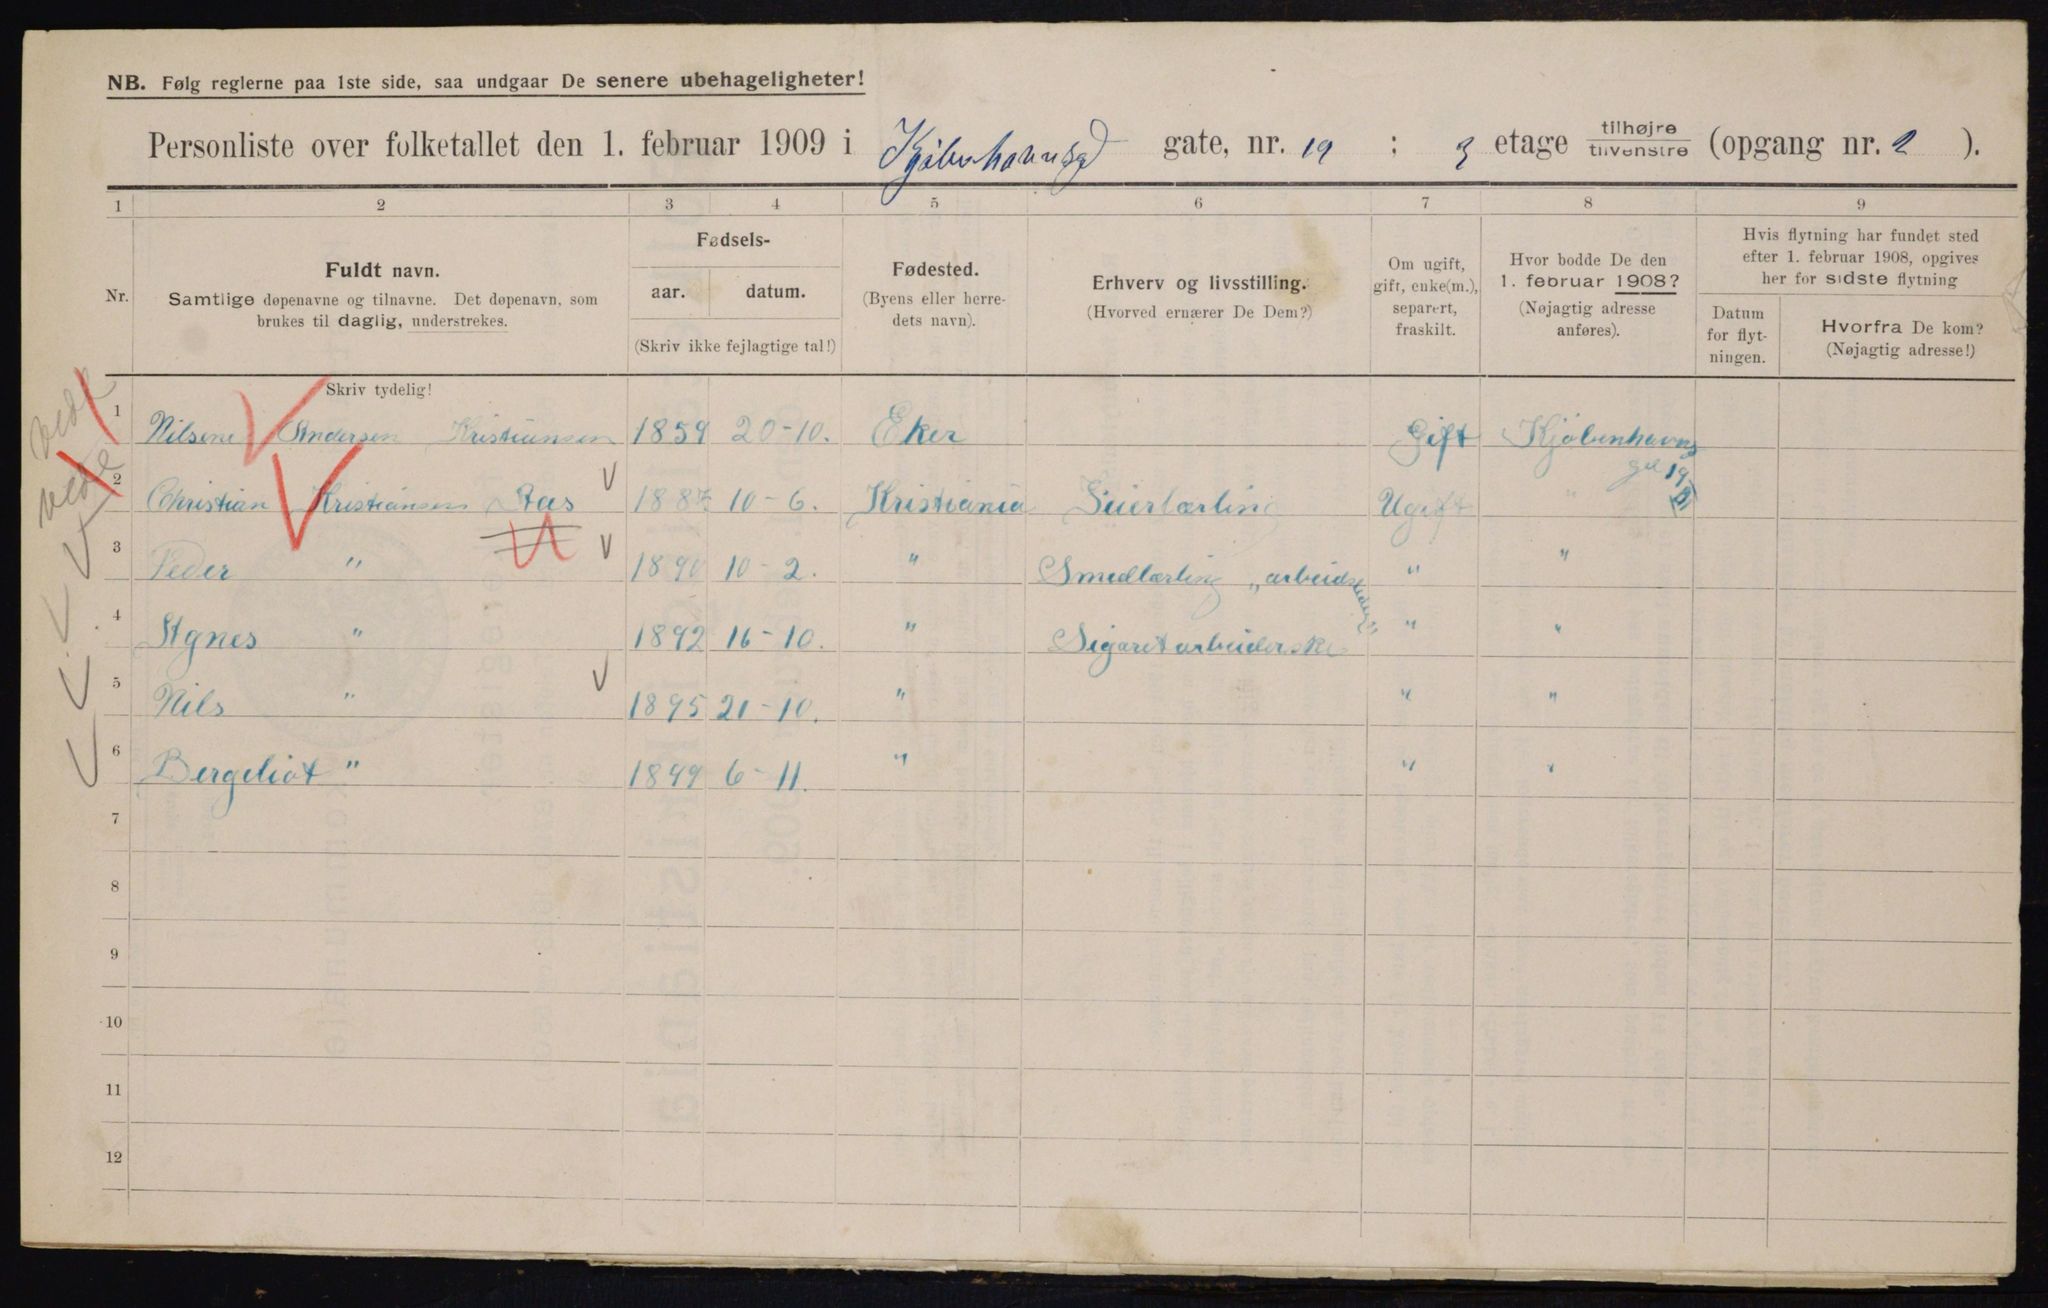 NB. Følg reglerne paa 1ste side, saa undgaar De senere ubehageligheter!
Personliste over folketallet den 1. februar 1909 i Kjøbenhavnsgd gate, nr. 19 ; 3 etage tilhøjre tilvenstre (opgang nr. 2 ).
1 2 3 4 5 6 7 8 9
Nr.
Fuldt navn.
Samtlige døpenavne og tilnavne. Det døpenavn, som
brukes til daglig, understrekes.
Fødsels-
aar. datum.
(Skriv ikke fejlagtige tal!)
Fødested.
(Byens eller herre-
dets navn).
Erhverv og livsstilling.
(Hvorved ernærer De Dem?)
Om ugift,
gift, enke(m.),
separert,
fraskilt.
Hvor bodde De den
1. februar 1908?
(Nøjagtig adresse
anføres).
Hvis flytning har fundet sted
efter 1. februar 1908, opgives
her for sidste flytning
Datum
for flyt-
ningen.
Hvorfra De kom?
(Nøjagtig adresse!)
Skriv tydelig!
1 Nilsene Andersen Kristiansen 1859 20-10. Eker Gift Kjøbenhavns
gd 19
2 Christian Kristiansen Aas 1887 10-6. Kristiania Ugift "
3 Peder " 1890 10-2. " Smedlærling „arbeidsledig" " "
4 Agnes " 1892 16-10. " Sigaretarbeiderske " "
5 Nils " 1895 21-10. " " "
6 Bergeliot " 1899 6-11. " " "
7
8
9
10
11
12